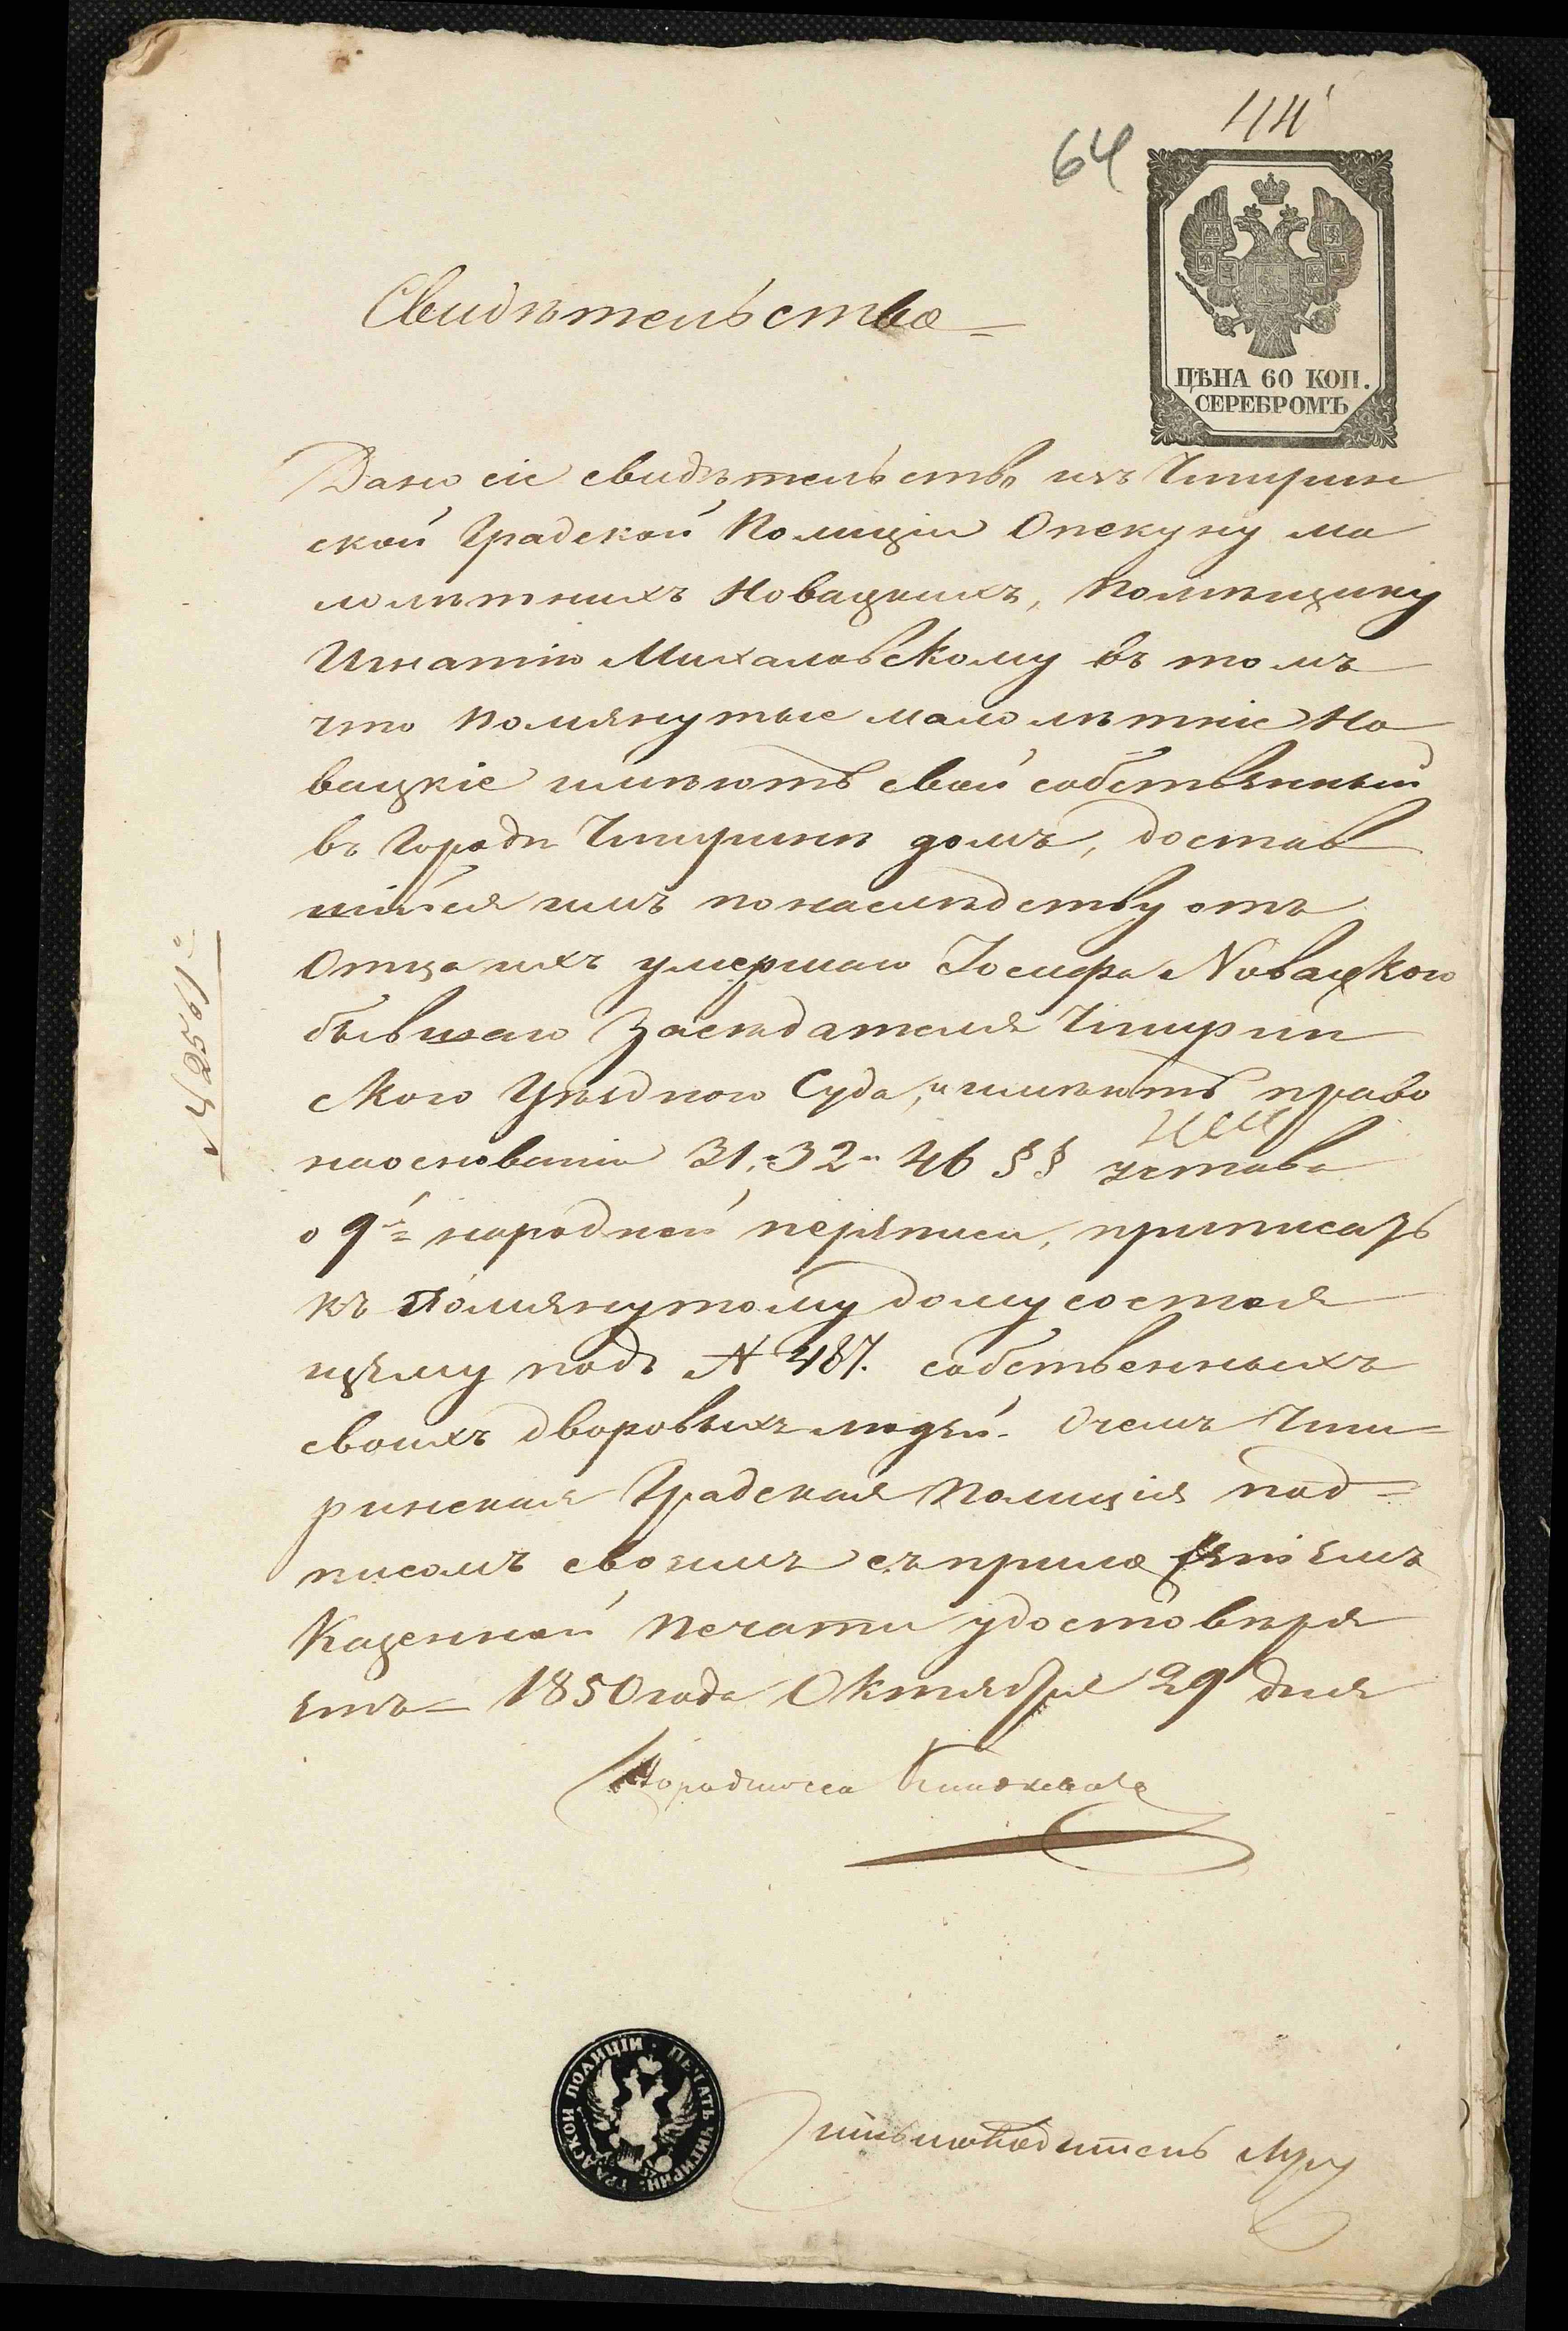 114
64
ЦѢНА 60 КОП.
СЕРЕБРОМЪ
Свидѣтельство
Дано сіе свидѣтельство изъ Чигирин
ской Градской Полиціи Опекуну ма
лолѣтнихъ Новацкихъ, Помѣщику
Игнатію Михаловскому въ томъ
что помянутые малолѣтніе Но
вацкіе имѣютъ свой собственный
въ Городѣ Чигиринѣ домъ, достав
шійся имъ по наслѣдству отъ
Отца ихъ умершаго Іосифа Новацкого
бывшаго Засѣдателя Чигирин
ского Уѣзднаго Суда, и имѣютъ право
на основаніи 31, 32 и 46 §§ устава
о 9й народной переписи, приписать
къ помянутому дому состоя
щему подъ № 487. собственныхъ
своихъ дворовыхъ людей. О чемъ Чиги=
ринская Градская Полиція под=
писомъ своимъ съ приложеніемъ
Казенной Печати удостовѣря
етъ= 1850 года Октября 29 дня
Городничій
Письмоводитель
№ 2561
ПЕЧАТЬ ЧИГИРИН: ГРАДСКОЙ ПОЛИЦІИ